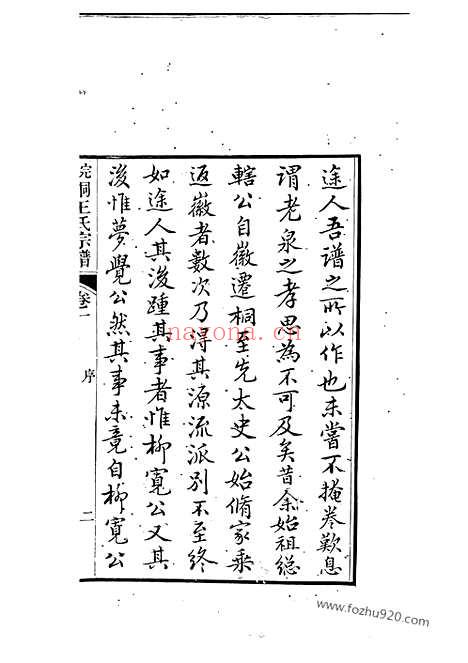 途人吾谱之所以作也未嘗不掩卷歎息
謂老泉之孝思為不可及矣昔余始祖總
轄公自徽遷桐至先太史公始脩家乘
返徽者數次乃得其源流派別不至終
如途人其後踵其事者惟柳寬公又其
後惟夢覺公然其事未竟自柳寬公
皖桐王氏宗譜
卷二
序
二
nayona.cn
www.fozhu920.com